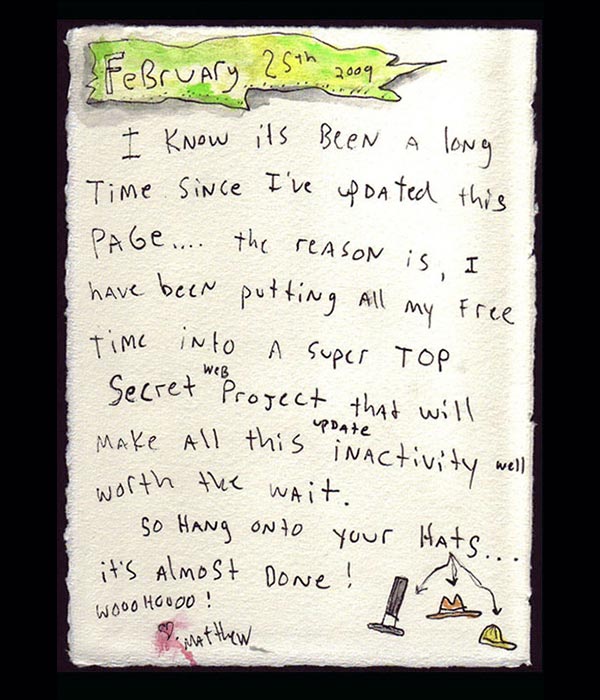 February 25th 2009
I know its been a long
time since I've updated this
page.... the reason is, I
have been putting all my free
time into a super TOP
Secret web Project that will
make all this update inactivity well
worth the wait.
so hang onto your Hats...
it's almost done!
woooHoooo!
♡. matthew